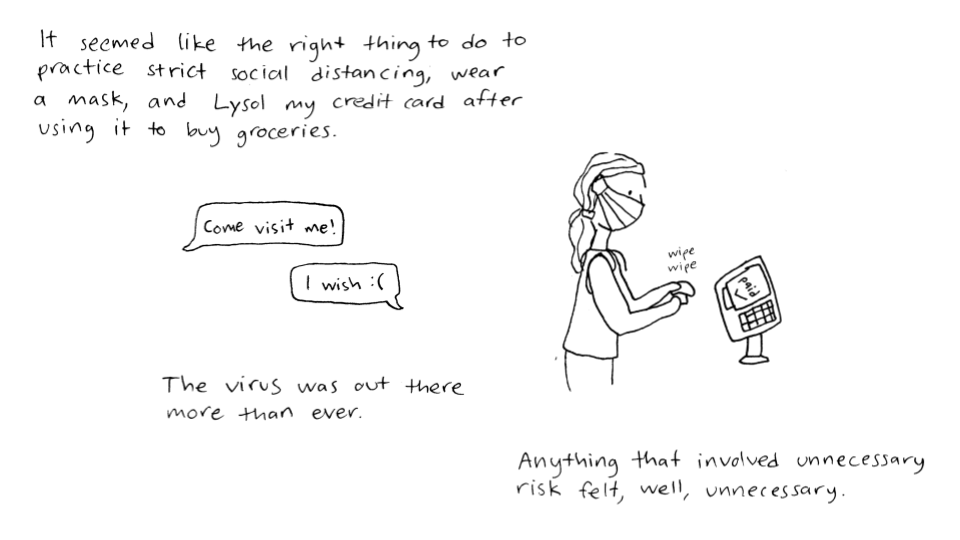 It seemed like the right thing to do to
practice strict social distancing, wear
a mask, and Lysol my credit card after
using it to buy groceries.
Come visit me!
I wish :(
wipe
wipe
paid
The virus was out there
more than ever.
Anything that involved unnecessary
risk felt, well, unnecessary.